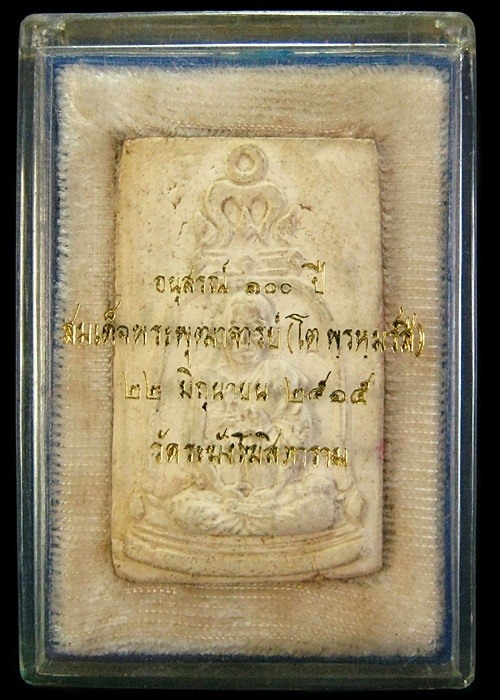 อนุสรณ์ ๑๐๐ ปี
สมเด็จพระพุฒาจารย์ (โต พฺรหฺมรํสี)
๒๒ มิถุนายน ๒๕๑๕
วัดระฆังโฆสิตาราม